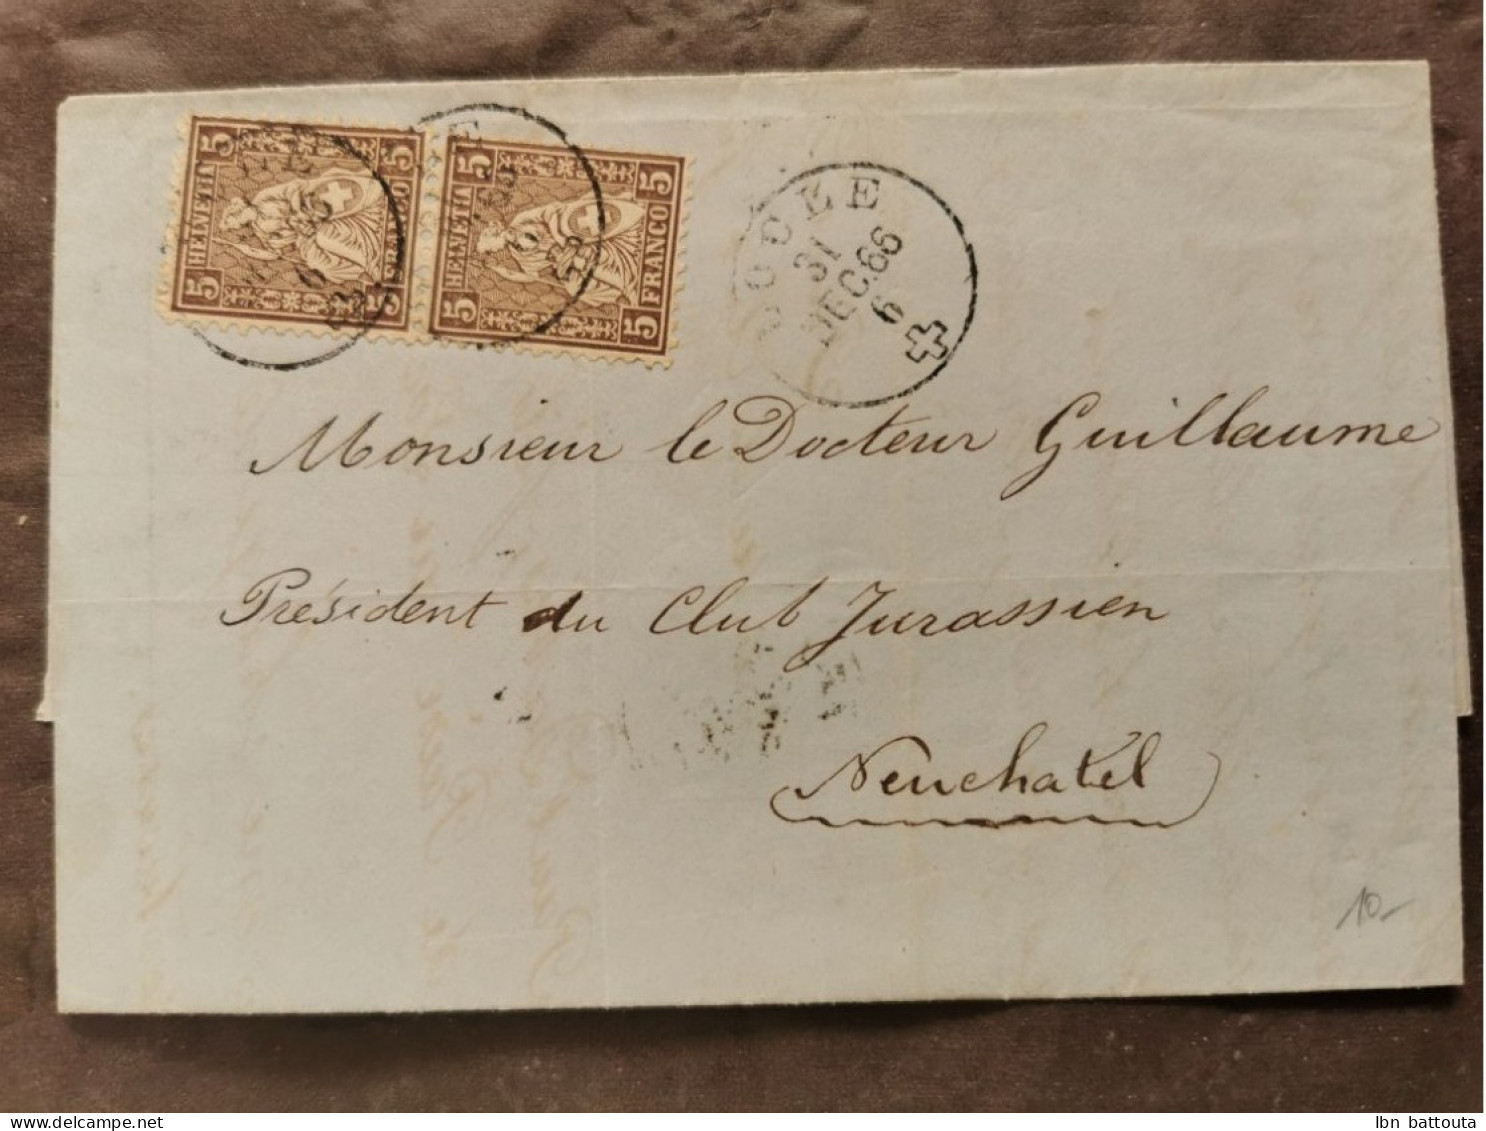 5 5
HELVETIA
FRANCO
5 5
5 5
HELVETIA
FRANCO
5 5
LOCLE
31
DEC. 66
6
Monsieur le Docteur Guillaume
Président du Club Jurassien
Neuchatel
10-
Ibn battouta